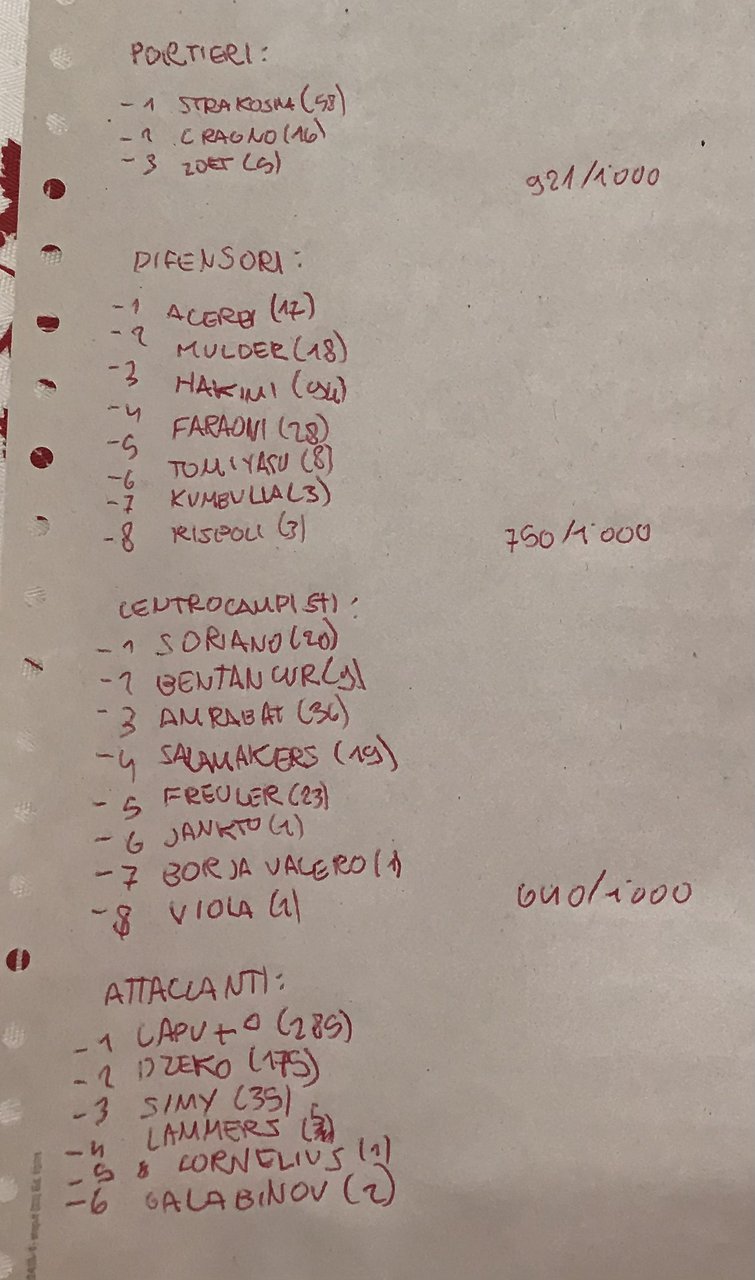 PORTIERI:
-1 STRAKOSHA (58)
-2 CRAGNO (16)
-3 ZOET (5)
921/1'000
DIFENSORI:
-1 ACERBI (17)
-2 MULDER (18)
-3 HAKIMI (94)
-4 FARAONI (28)
-5 TOMIYASU (8)
-6 KUMBULLA (3)
-7 RISPOLI (3)
-8
750/1'000
CENTROCAMPISTI:
-1 SORIANO (20)
-2 BENTANCUR (9)
-3 AMRABAT (36)
-4 SALAMAKERS (19)
-5 FREULER (23)
-6 JANKTO (1)
-7 BORJA VALERO (1)
-8 VIOLA (1)
640/1'000
ATTACCANTI:
-1 CAPUTO (285)
-2 DZEKO (175)
-3 SIMY (35)
-4 LAMMERS
-5 CORNELIUS (1)
-6 GALABINOV (2)